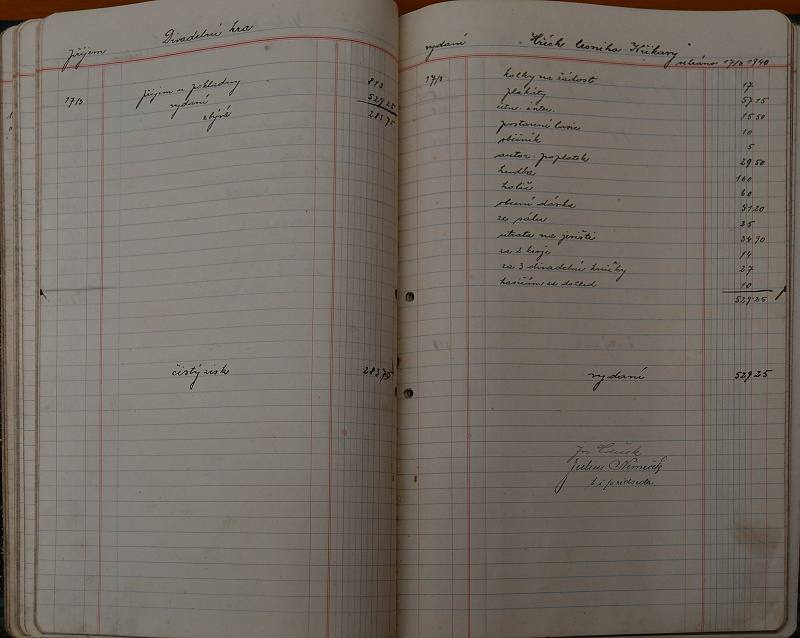 příjem Divadelní hra
17/3 příjem u pokladny 813
vydání 529 25
zbývá 283 75
čistý zisk 283 75
vydání "Hřích lesníka Kříkavy" sehráno 17/3 1940
17/3 kolky na žádost 17
plakáty 57 15
15 50
postavení 10
sběrník 5
autor. poplatek 29 50
hudba 160
holič 60
obecní dávka 51 20
ze sálu 35
útrata na jevišti 34 90
za 2 kroje 14
za 3 divadelní knížky 27
hasičům za dohled 10
529 25
vydání 529 25
Julius Němeček
t. č. předseda